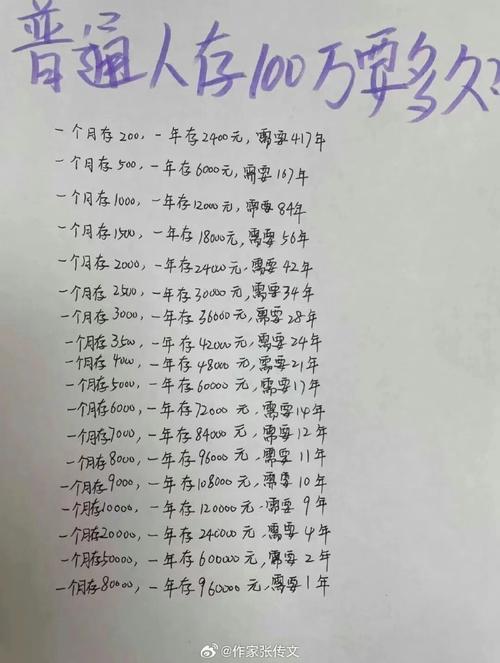 普通人存100万要多久?
一个月存200,一年存2400元,需要417年
一个月存500,一年存6000元,需要167年
一个月存1000,一年存12000元,需要84年
一个月存1500,一年存18000元,需要56年
一个月存2000,一年存24000元,需要42年
一个月存2500,一年存30000元,需要34年
一个月存3000,一年存36000元,需要28年
一个月存3500,一年存42000元,需要24年
一个月存4000,一年存48000元,需要21年
一个月存5000,一年存60000元,需要17年
一个月存6000,一年存72000元,需要14年
一个月存7000,一年存84000元,需要12年
一个月存8000,一年存96000元,需要11年
一个月存9000,一年存108000元,需要10年
一个月存10000,一年存120000元,需要9年
一个月存20000,一年存240000元,需要4年
一个月存50000,一年存600000元,需要2年
一个月存80000,一年存960000元,需要1年
@作家张传文